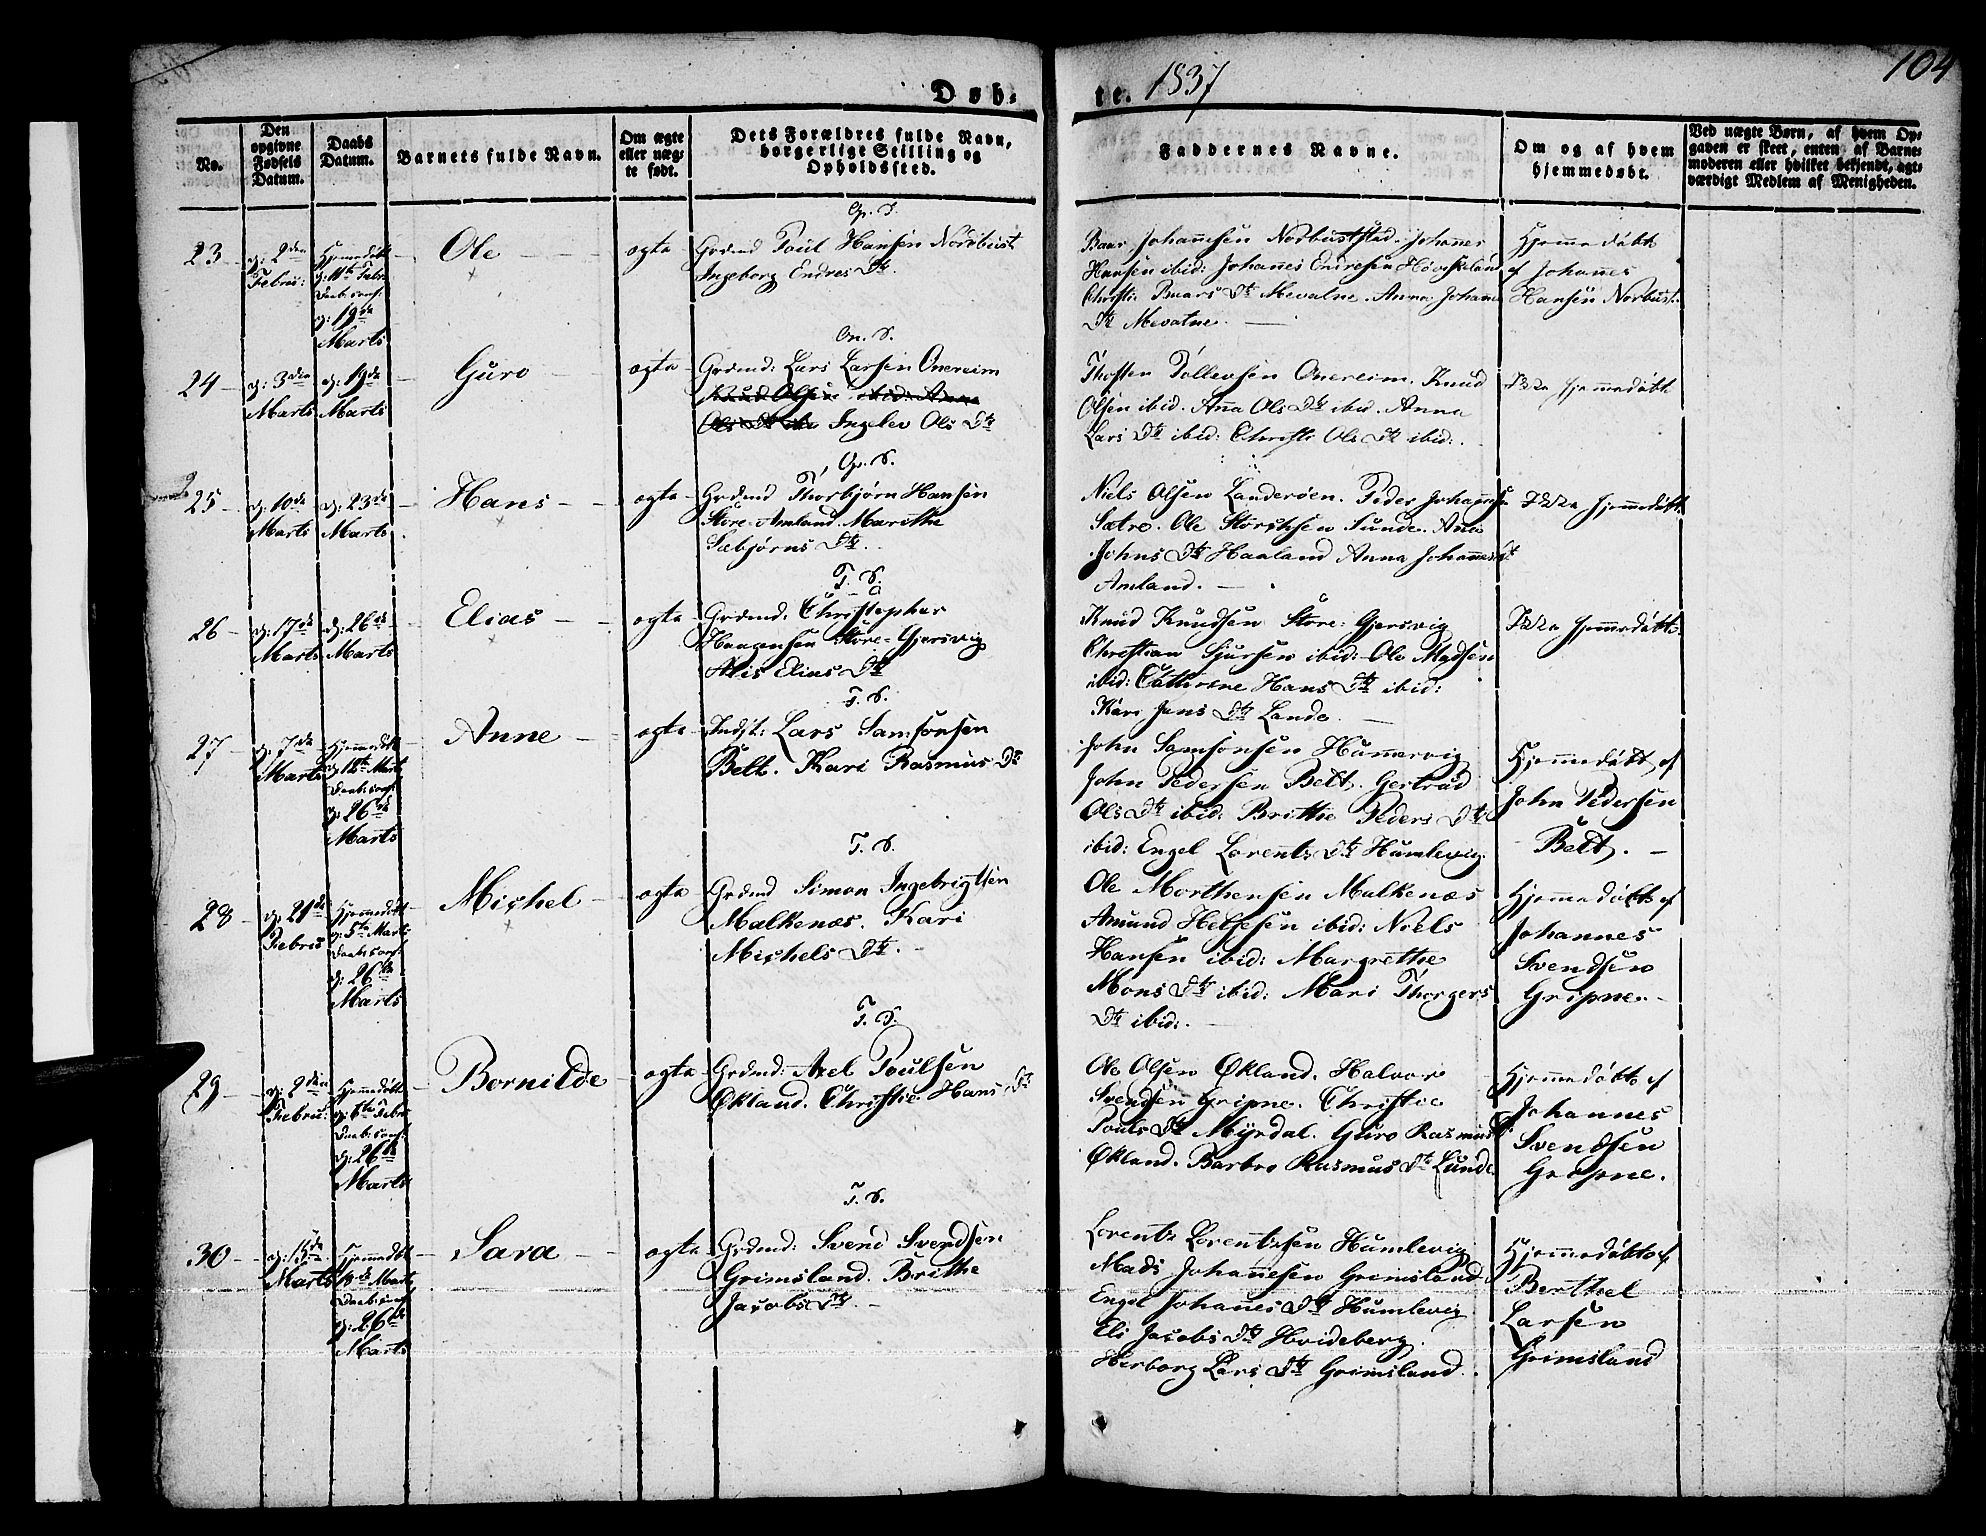 104
Døb-
te. 1837
No.
Den opgivne Fødsels Datum.
Daabs Datum.
Barnets fulde Navn.
Om ægte eller uægte født.
Dets Forældres fulde Navn, borgerlige Stilling og Opholdssted.
Faddernes Navne.
Om og af hvem hjemmedøbt.
Ved uægte Børn, af hvem Opgaven er skeet, enten af Barnemoderen eller hvilket bekjendt, agtværdigt Medlem af Menigheden.
23
d: 2den
Febru:
Hjemedøbt
d: 11te Febr:
Daab. conf:
d: 19de
Marts
Ole
ægte
Grdmd Poul Hansen Norbust
Ingeborg Endres Dtr.
Baar Johannesen Norbuststad. Johannes
Hansen ibid: Johannes Endresen Høveskeland
Christi Baars Dtr Mevatne. Anna Johans
Dtr Mevatne.
Hjemmedøbt
af Johannes
Hansen Norbust.
24
d: 3den
Marts
d: 19de
Marts
Guro
ægte
Grdmd: Lars Larsen Onereim
Ingelev Ols Dtr
Thosten Tollevsen Onereim. Knud
Olsen ibid. Anna Ols Dtr ibid. Anna
Lars Dtr ibid: Christi Ole Dtr ibid:
Ikke hjemmedøbt
25
d: 10de
Marts
d: 23de
Marts
Hans
ægte
Grdmd Thorbjørn Hansen
Støre-Amland. Marithe
Sæbjørns Dtr.
Niels Olsen Landerøen. Peder Johannesen
Sætre. Ole Størchsen Sunde. Anna
Johns Dtr Haaland Anna Johannes Dt
Amland.
Ikke hjemmedøbt
26
d: 17de
Marts
d: 26de
Marts
Elias
ægte
T. S.
Grdmd. Christopher
Haagensen Støre-Gjersvig
Alis Elias Dtr
Knud Knudsen Støre-Gjersvig
Christian Sjursen ibid: Ole Madsen
ibid: Cathrine Hans Dtr ibid:
Kari Jens Dtr Lande.
Ikke hjemmedøbt.
27
d: 7de
Marts
Hjemmedøbt
d: 12te Marts
Daab: conf:
d: 26de
Marts
Anne
ægte
T. S.
Indst: Lars Samsonsen
Belt. Kari Rasmus Dtr
John Samsonsen Humlevig
John Pedersen Belt. Gertrud
Ols Dtr ibid: Brithe Peders Dtr
ibid: Engel Lorents Dtr Humlevig.
Hjemmedøbt af
John Pedersen
Belt.
28
d: 21de
Febrs
Hjemmedøbt
d: 5te Marts
Daab: conf:
d: 26de
Marts
Michel
ægte
T. S.
Grdmd Simon Ingebrigtsen
Malkenæs. Kari
Michels Dtr.
Ole Morthensen Malkenæs
Amund Helgesen ibid: Niels
Hansen ibid: Margrethe
Mons Dtr ibid: Mari Thorgers
Dtr ibid:
Hjemmedøbt af
Johannes
Svendsen
Gripne.
29
d: 2den
Febru:
Hjemmedøbt
d: 6te Febr:
Daab: conf:
d: 26de
Marts
Bornilde
ægte
T. S.
Grdmd: Axel Poulsen
Økland. Christie Hans Dtr
Ole Olsen Økland. Halvor
Svendsen Gripne. Christie
Pouls Dtr Myrdal. Guro Rasmus Dt
Økland. Barbro Rasmus Dtr Lunde
Hjemmedøbt af
Johannes
Svendsen
Gripne.
30
d: 15de
Marts
Hjemmedøbt
18de Marts
Daab: conf
d: 26de
Marts
Sara
ægte
T. S.
Grdmd: Svend Svendsen
Grimsland. Brithe
Jacobs Dtr.
Lorents Lorentzsen Humlevig
Mads Johannesen Grimsland.
Engel Johannes Dtr Humlevig
Eli Jacobs Dtr Hvideberg.
Herborg Lars Dtr Grimsland.
Hjemmedøbt af
Berthel
Larsen
Grimsland